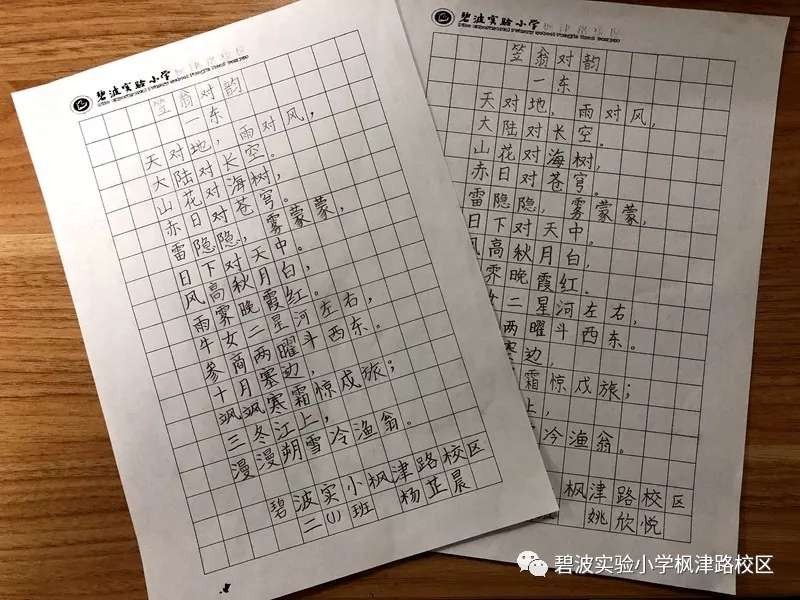 碧波实验小学
笠翁对韵
一东
天对地，雨对风，
大陆对长空。
山花对海树，
赤日对苍穹。
雷隐隐，雾蒙蒙，
日下对天中。
风高秋月白，
雨霁晚霞红。
牛女二星河左右，
参商两曜斗西东。
十月塞边，
飒飒寒霜惊戍旅；
三冬江上，
漫漫朔雪冷渔翁。
碧波实小枫津路校区
二（1）班 杨芷晨
碧波实验小学
笠翁对韵
一东
天对地，雨对风，
大陆对长空。
山花对海树，
赤日对苍穹。
雷隐隐，雾蒙蒙，
日下对天中。
风高秋月白，
霁晚霞红。
女二星河左右，
两曜斗西东。
塞边，
霜惊戍旅；
上，
冷渔翁。
枫津路校区
姚欣悦
碧波实验小学枫津路校区